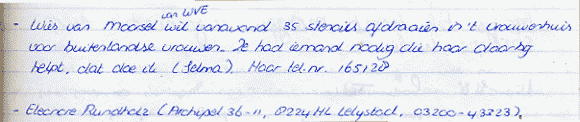 van WVE
- Wies van Moorsel wil vanavond 35 stencils afdraaien in 't vrouwenhuis
voor buitenlandse vrouwen. Ze had iemand nodig die haar daarbij
helpt, dat doe ik (Selma). Haar tel.nr. 165128
- Eleonore Rundholz (Archipel 36-11, 8224 HL Lelystad, 03200-43723),